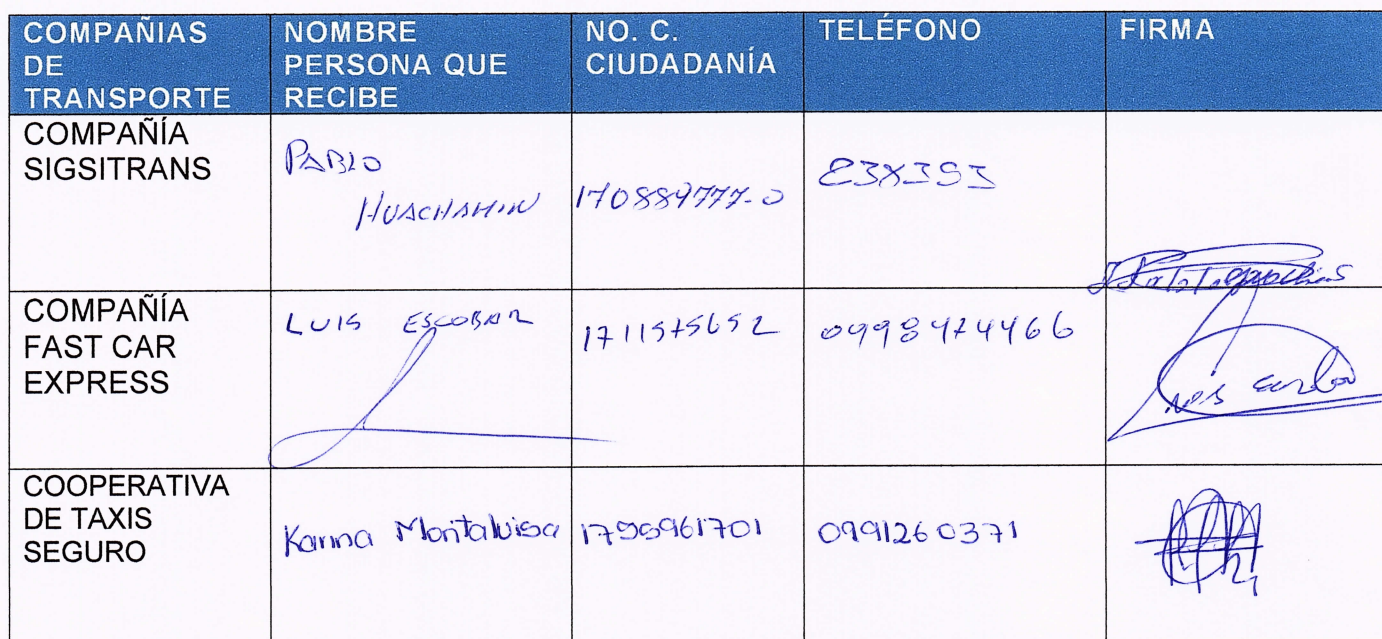 COMPAÑIAS
DE
TRANSPORTE
NOMBRE
PERSONA QUE
RECIBE
NO. C.
CIUDADANÍA
TELÉFONO
FIRMA
COMPAÑÍA
SIGSITRANS
PABLO
HUACHAMIN
COMPAÑÍA
FAST CAR
EXPRESS
LUIS ESCOBAR
1711575652
0998474466
COOPERATIVA
DE TAXIS
SEGURO
Karina Montaluisa
0991260371